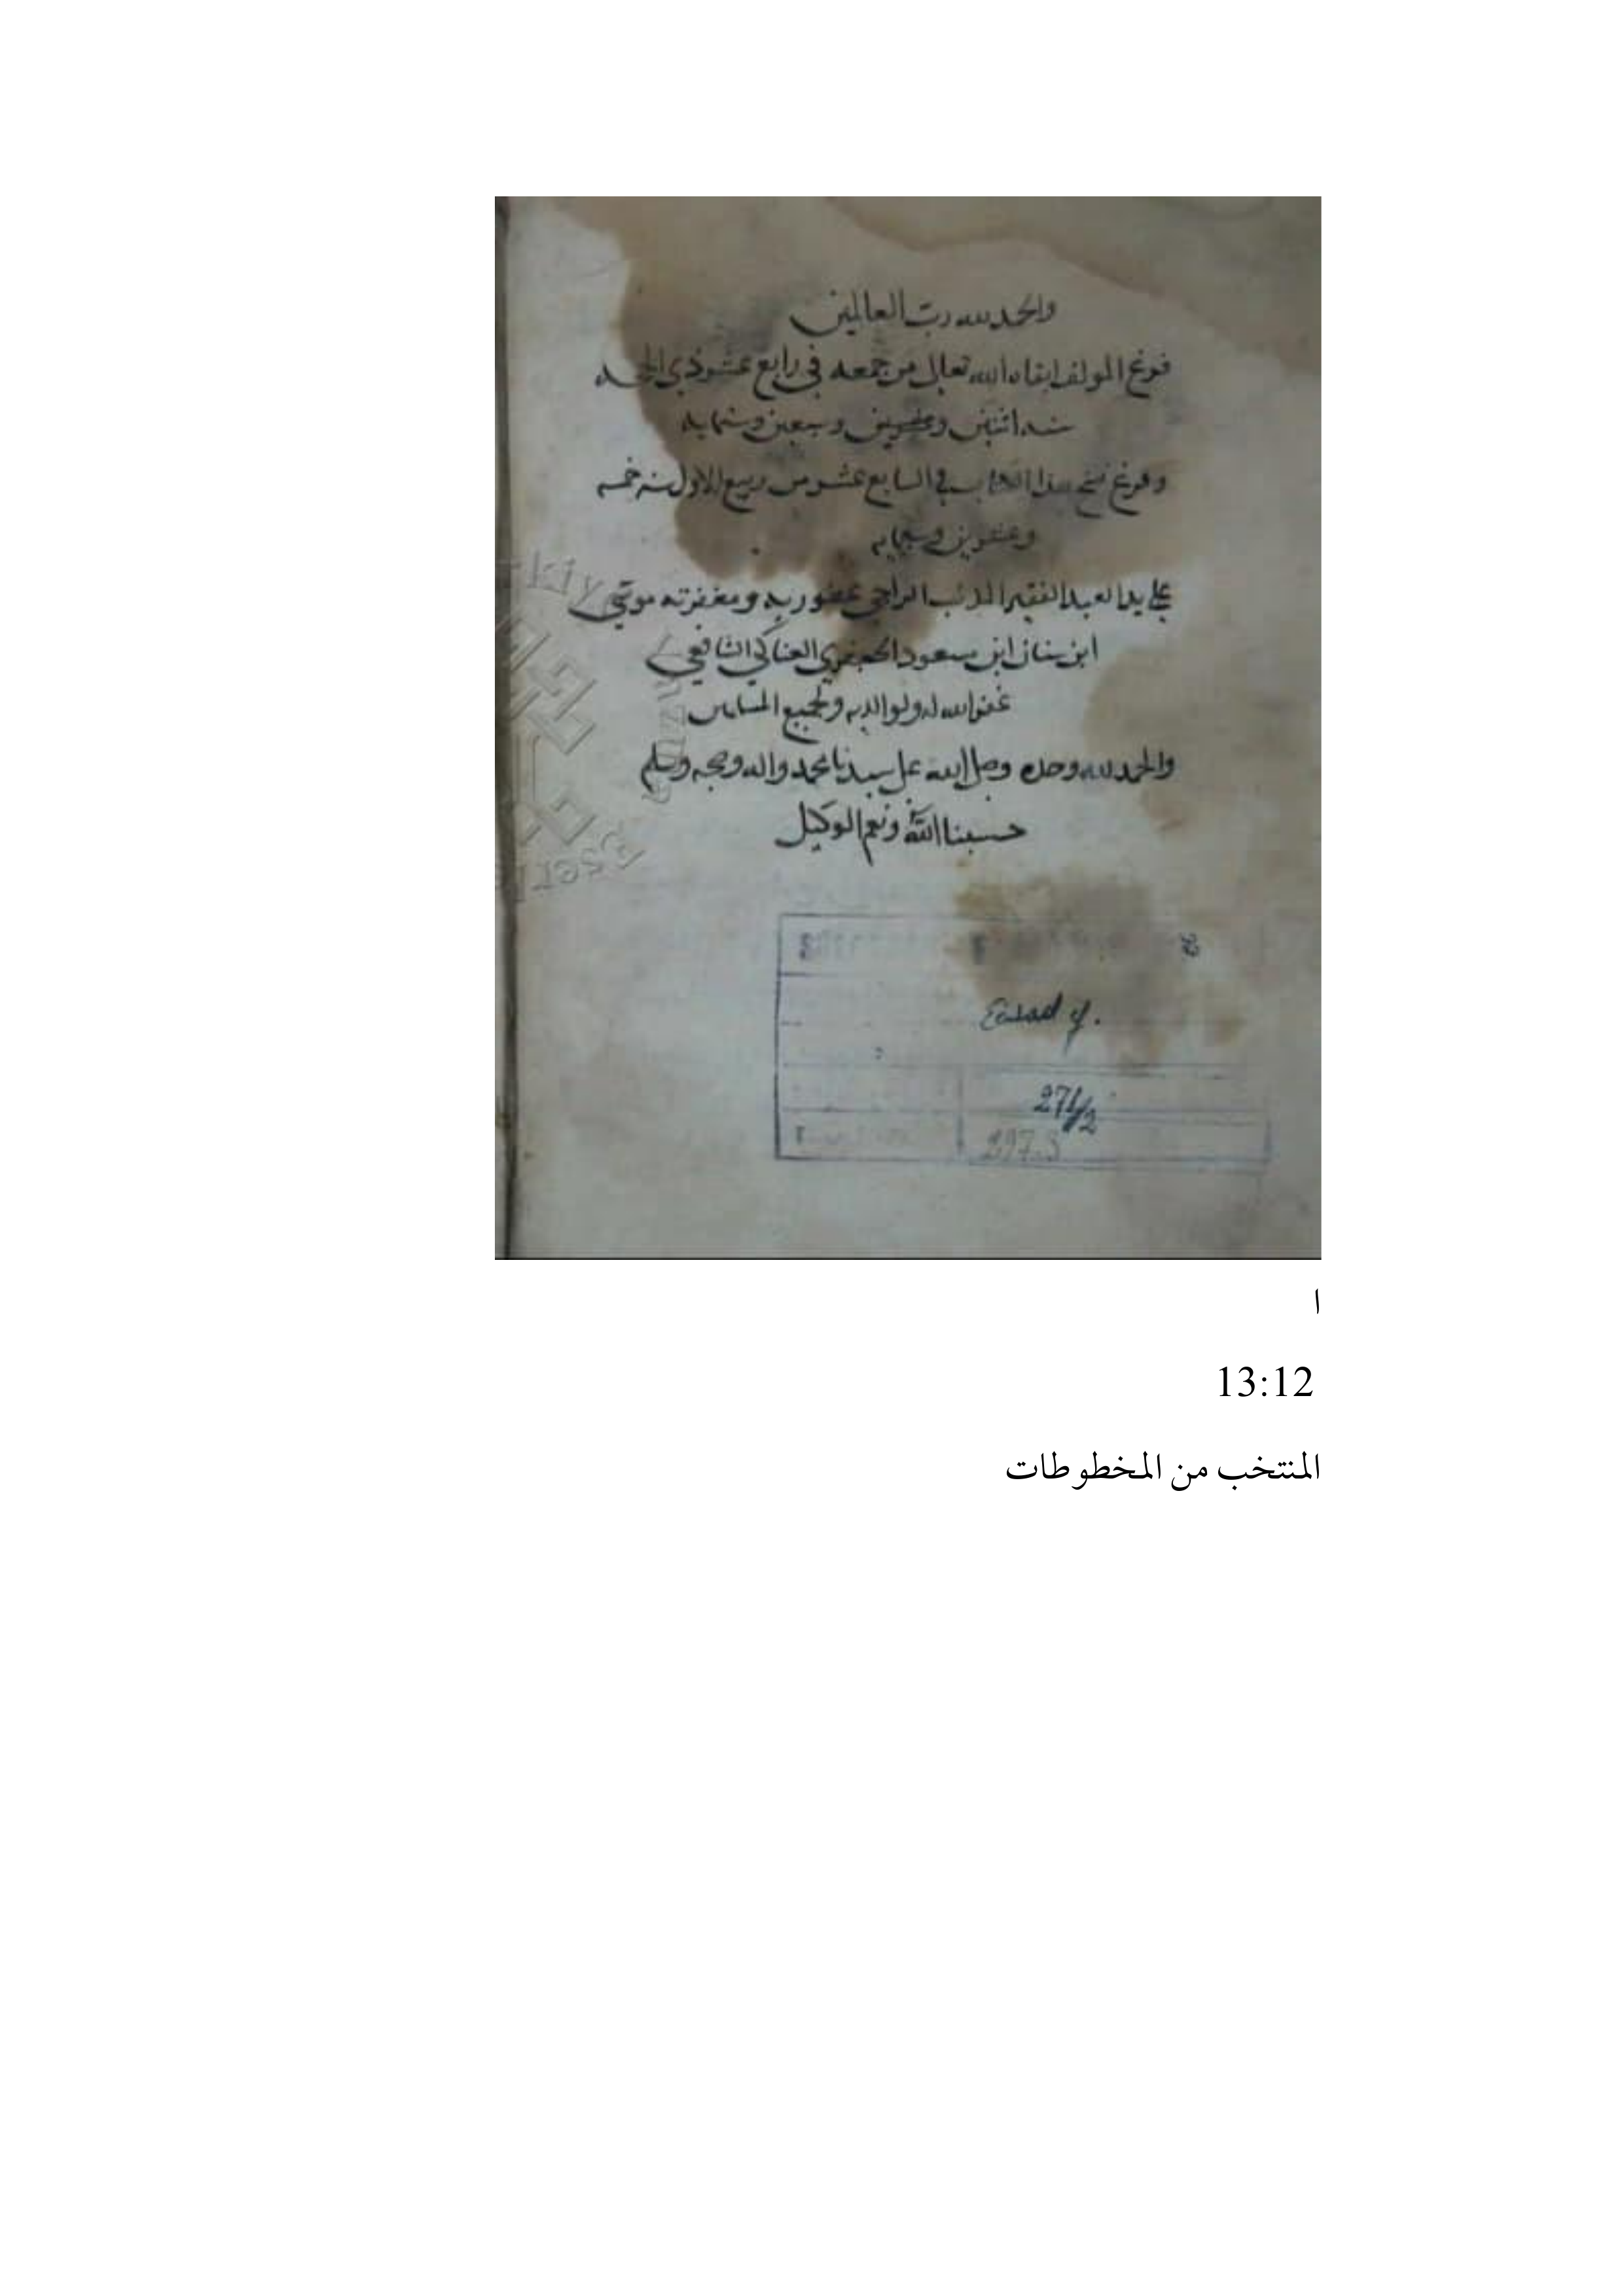 والحمد لله رب العالمين
فرغ المولف ابقاه الله تعالى من جمعه في رابع عشر ذي الحجه
سنه اثنتين وسبعين وستمايه
وفرغ نسخ هذا الكتاب في السابع عشر من ربيع الاول سنه خمسه
وعشرين وسبعمايه
على يد العبد الفقير المذنب الراجي عفو ربه ومغفرته موسى
ابن سنان ابن مسعود الجعفري الشافعي
غفر الله له ولوالديه ولجميع المسلمين
والحمد لله وحده وصلى الله على سيدنا محمد واله وصحبه وسلم
حسبنا الله ونعم الوكيل
Esad ef.
271/2
297.3
ا
13:12
المنتخب من المخطوطات